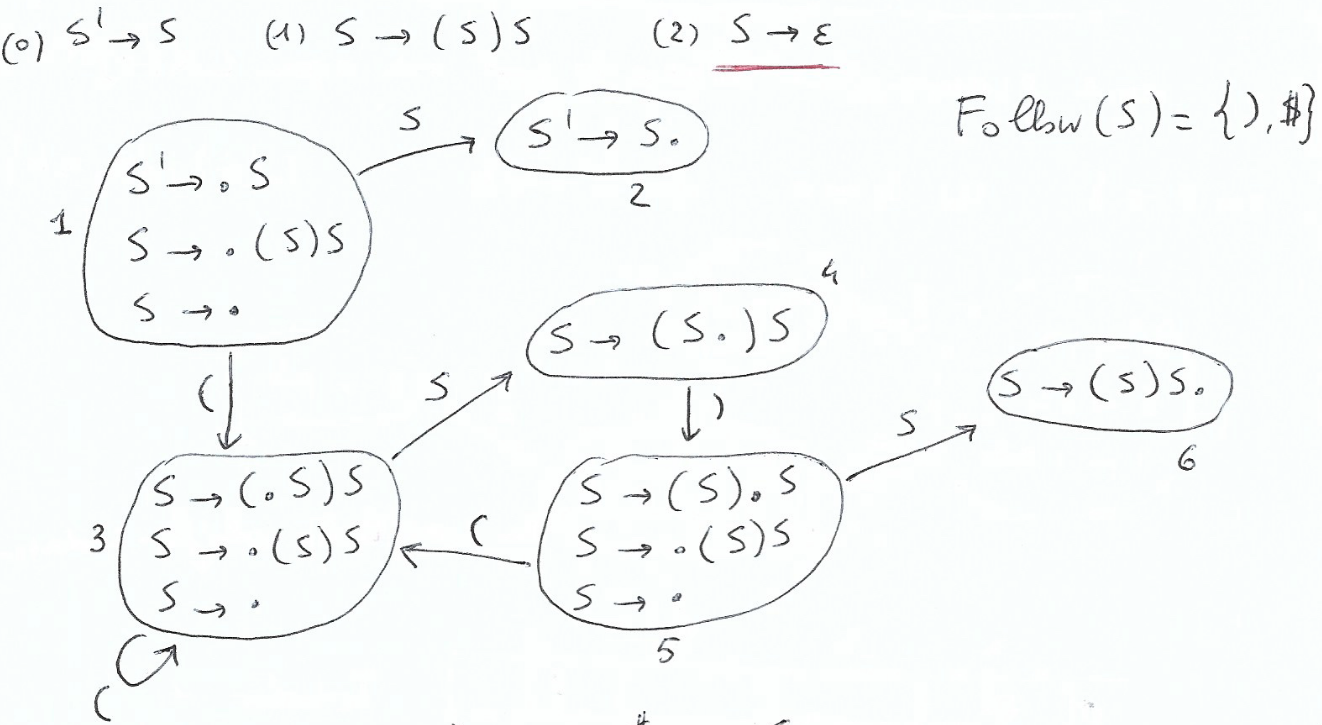 (0) S' → S (1) S → (S)S (2) S → ε
Follow(S) = {), $}
S
S' → S.
2
1
S' → . S
S → . (S)S
S → .
(
4
S → (S.)S
S
)
S → (S)S.
6
S
3
S → (.S)S
S → .(S)S
S → .
(
(
S → (S).S
S → .(S)S
S → .
5